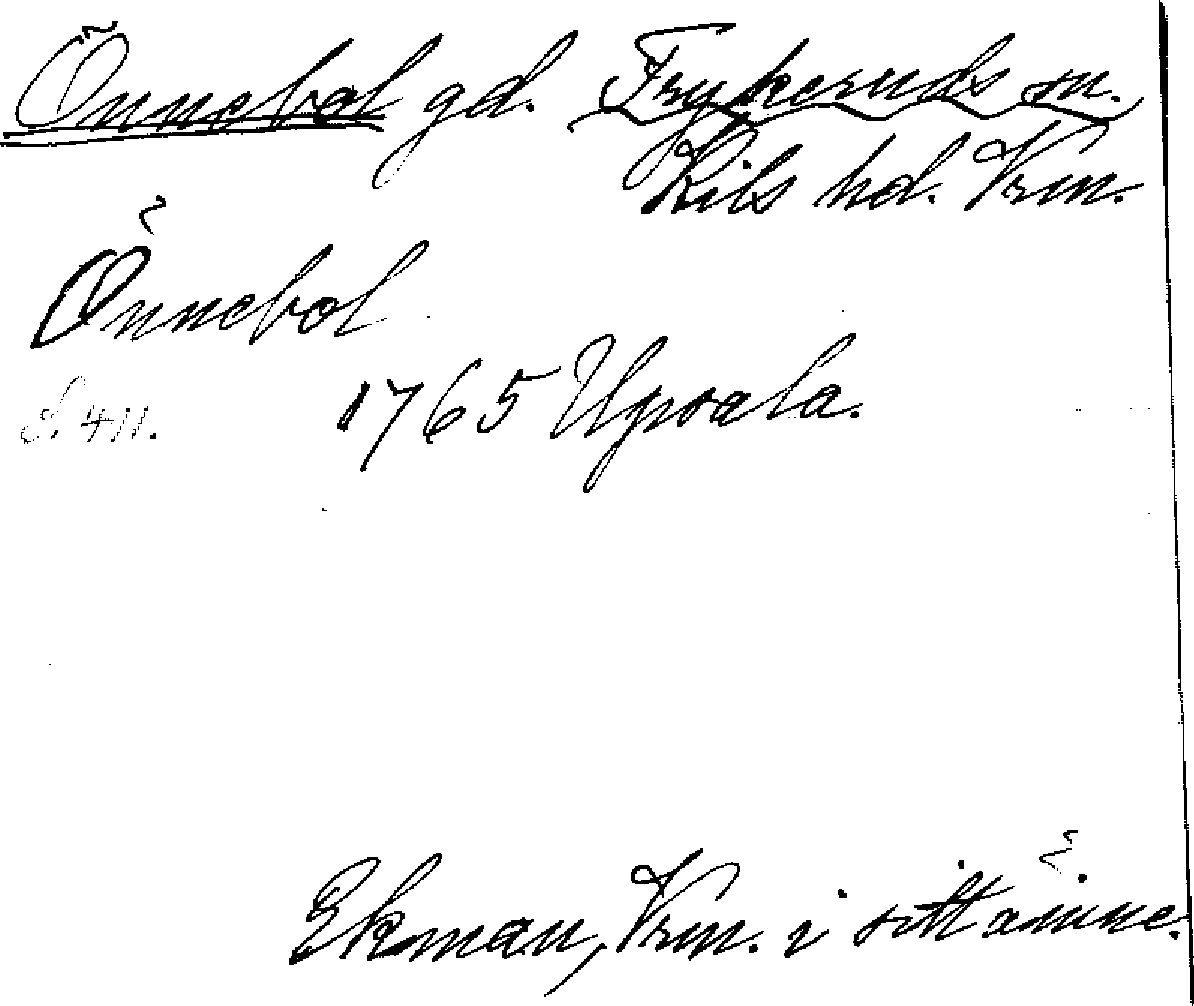 Önnebol gd. Frykeruds sn.
Kils hd. Vrm.
Önnebol
S. 411. 1765 Upsala.
Ekman, Vrm. i sitt ämne.